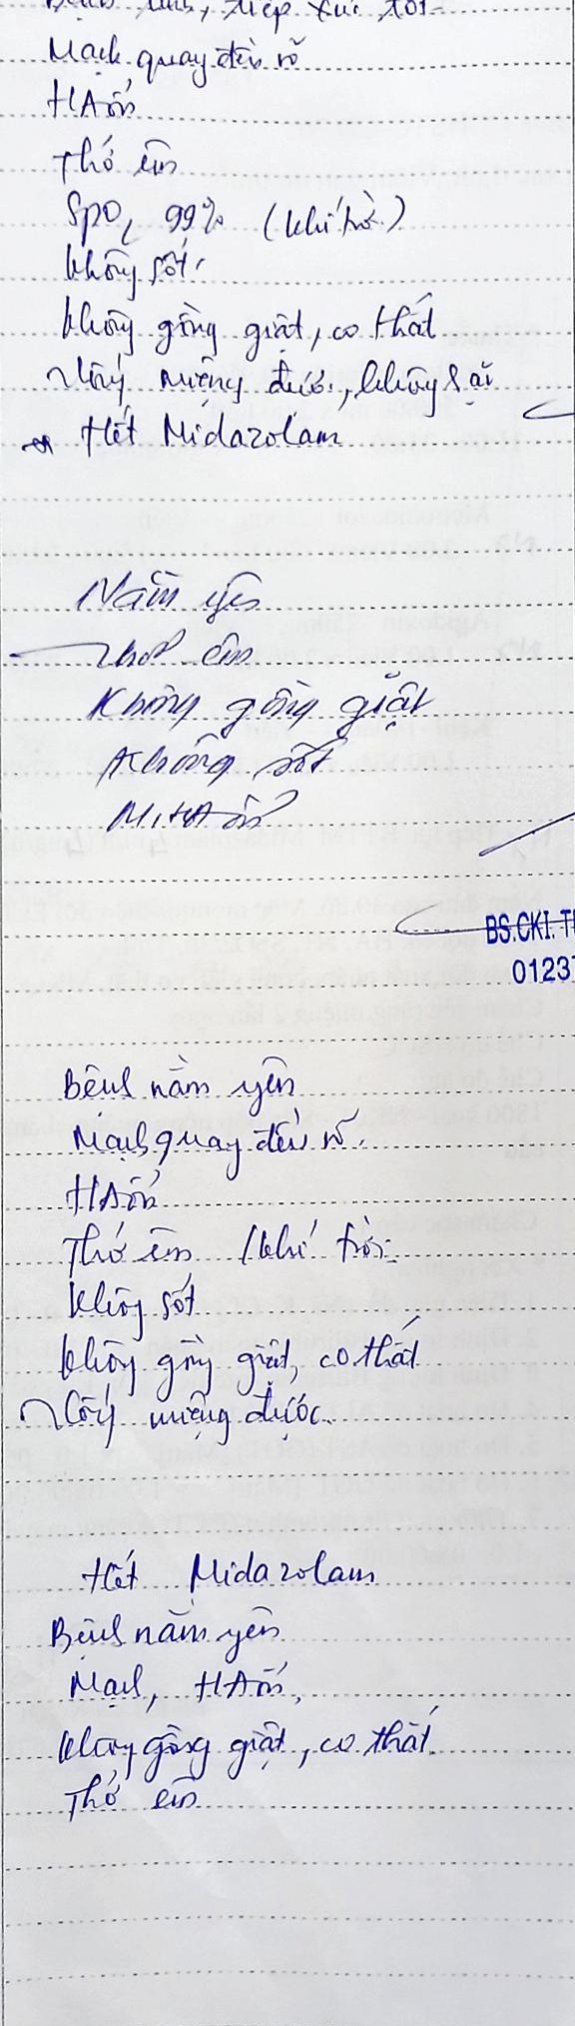 Bệnh tỉnh, tiếp xúc tốt
Mạch quay đều rõ
HA ổn
Thở êm
SpO2 99% (khí trời)
không sốt
không gồng giật, co thắt
Uống miệng được, không sặc
Hết Midazolam
Nằm yên
Thở êm
Không gồng giật
Không sốt
M, HA ổn
BS.CKI. T
01237
Bệnh nằm yên
Mạch quay đều rõ.
HA ổn
Thở êm /khí trời
không sốt
không gồng giật, co thắt
Uống miệng được.
Hết Midazolam
Bệnh nằm yên
Mạch, HA ổn,
không gồng giật, co thắt
Thở êm